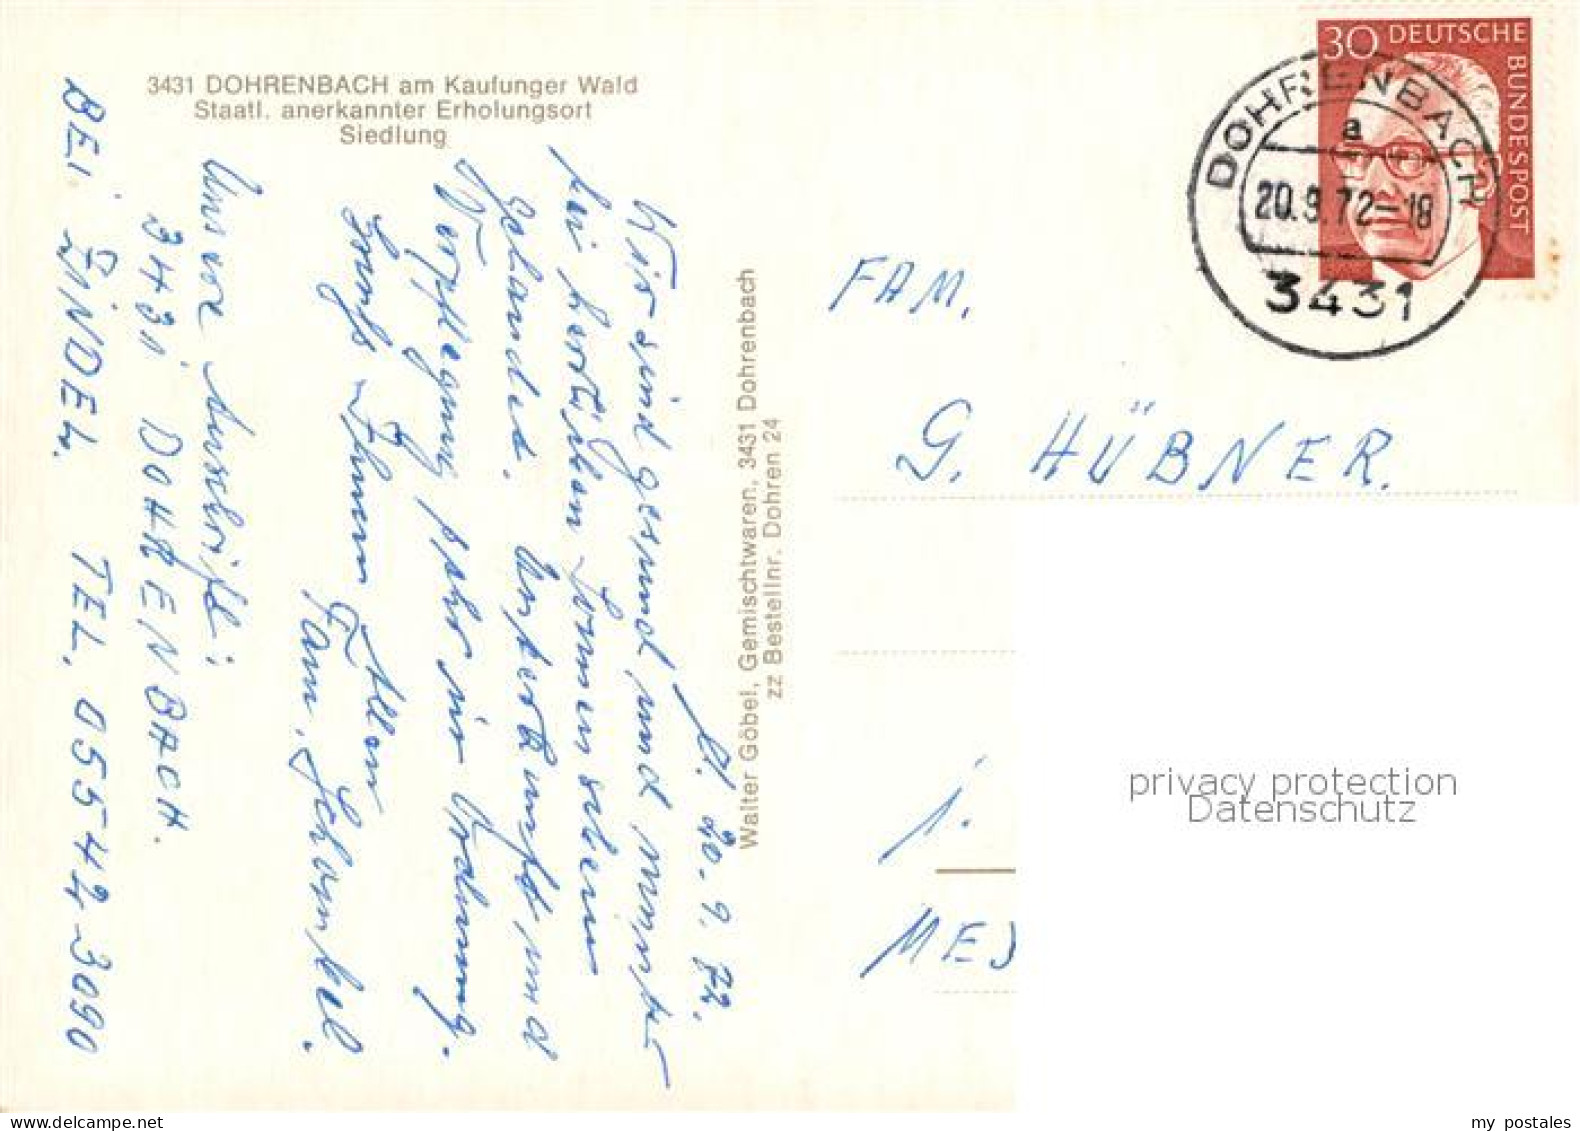 3431 DOHRENBACH am Kaufunger Wald
Staatl. anerkannter Erholungsort
Siedlung
D. 20.9.72.
Wir sind gesund und munter
bei herrlichem Sonnenschein
gelandet. Unterkunft und
Verpflegung sehr in Ordnung.
Gruß Ihnen Allen
Fam.
Unsere Anschrift:
3431 DOHRENBACH.
BEI ZINDEL. TEL. 05542-3090
Walter Göbel, Gemischtwaren, 3431 Dohrenbach
zz Bestellnr. Dohren 24
30 DEUTSCHE
BUNDESPOST
DOHRENBACH
a
20.9.72-18
3431
FAM.
G. HÜBNER.
1.
ME
privacy protection
Datenschutz
www.delcampe.net
my postales